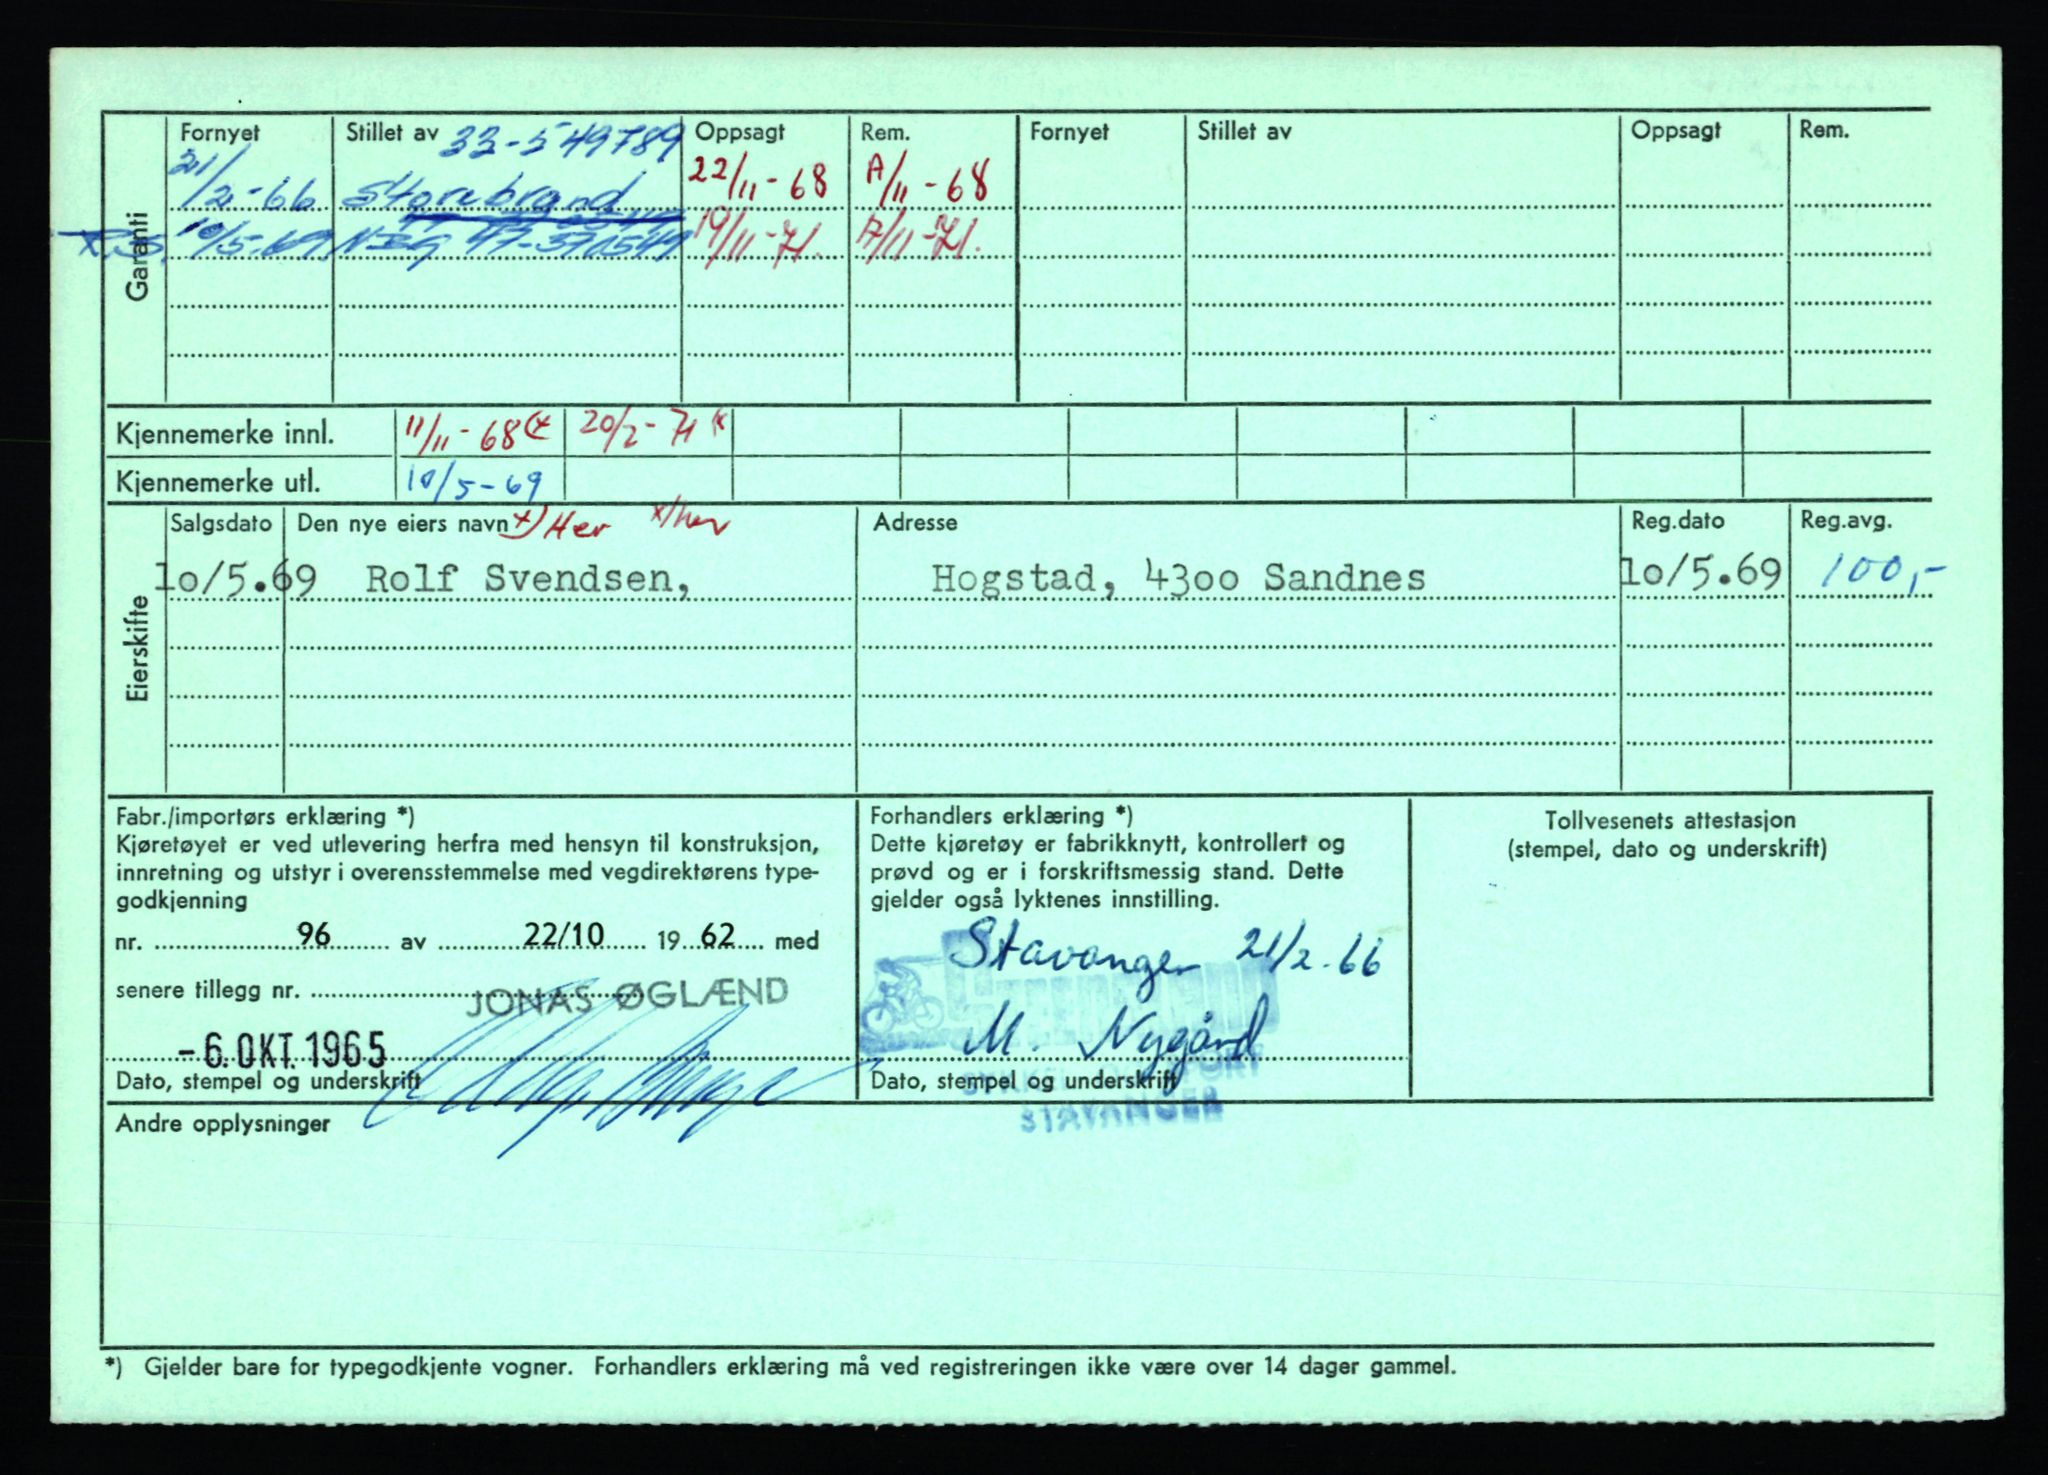 Garanti
Fornyet Stillet av 33-549789 Oppsagt Rem. Fornyet Stillet av Oppsagt Rem.
21/2-66 Storebrand 22/11-68 A/11-68
10/5.69 19/11-71. 17/11-71.
Kjennemerke innl. 11/11-68 20/2-71
Kjennemerke utl. 10/5-69
Eierskifte
Salgsdato Den nye eiers navn x) Her x/her Adresse Reg.dato Reg.avg.
10/5.69 Rolf Svendsen, Hogstad, 4300 Sandnes 10/5.69 100,-
Fabr./importørs erklæring *)
Kjøretøyet er ved utlevering herfra med hensyn til konstruksjon,
innretning og utstyr i overensstemmelse med vegdirektørens type-
godkjenning
nr. 96 av 22/10 19 62 med
senere tillegg nr.
JONAS ØGLÆND
-6.OKT.1965
Dato, stempel og underskrift
Forhandlers erklæring *)
Dette kjøretøy er fabrikknytt, kontrollert og
prøvd og er i forskriftsmessig stand. Dette
gjelder også lyktenes innstilling.
Stavanger 21/2-66
M. Nygård
Dato, stempel og underskrift
STAVANGER
Tollvesenets attestasjon
(stempel, dato og underskrift)
Andre opplysninger
*) Gjelder bare for typegodkjente vogner. Forhandlers erklæring må ved registreringen ikke være over 14 dager gammel.